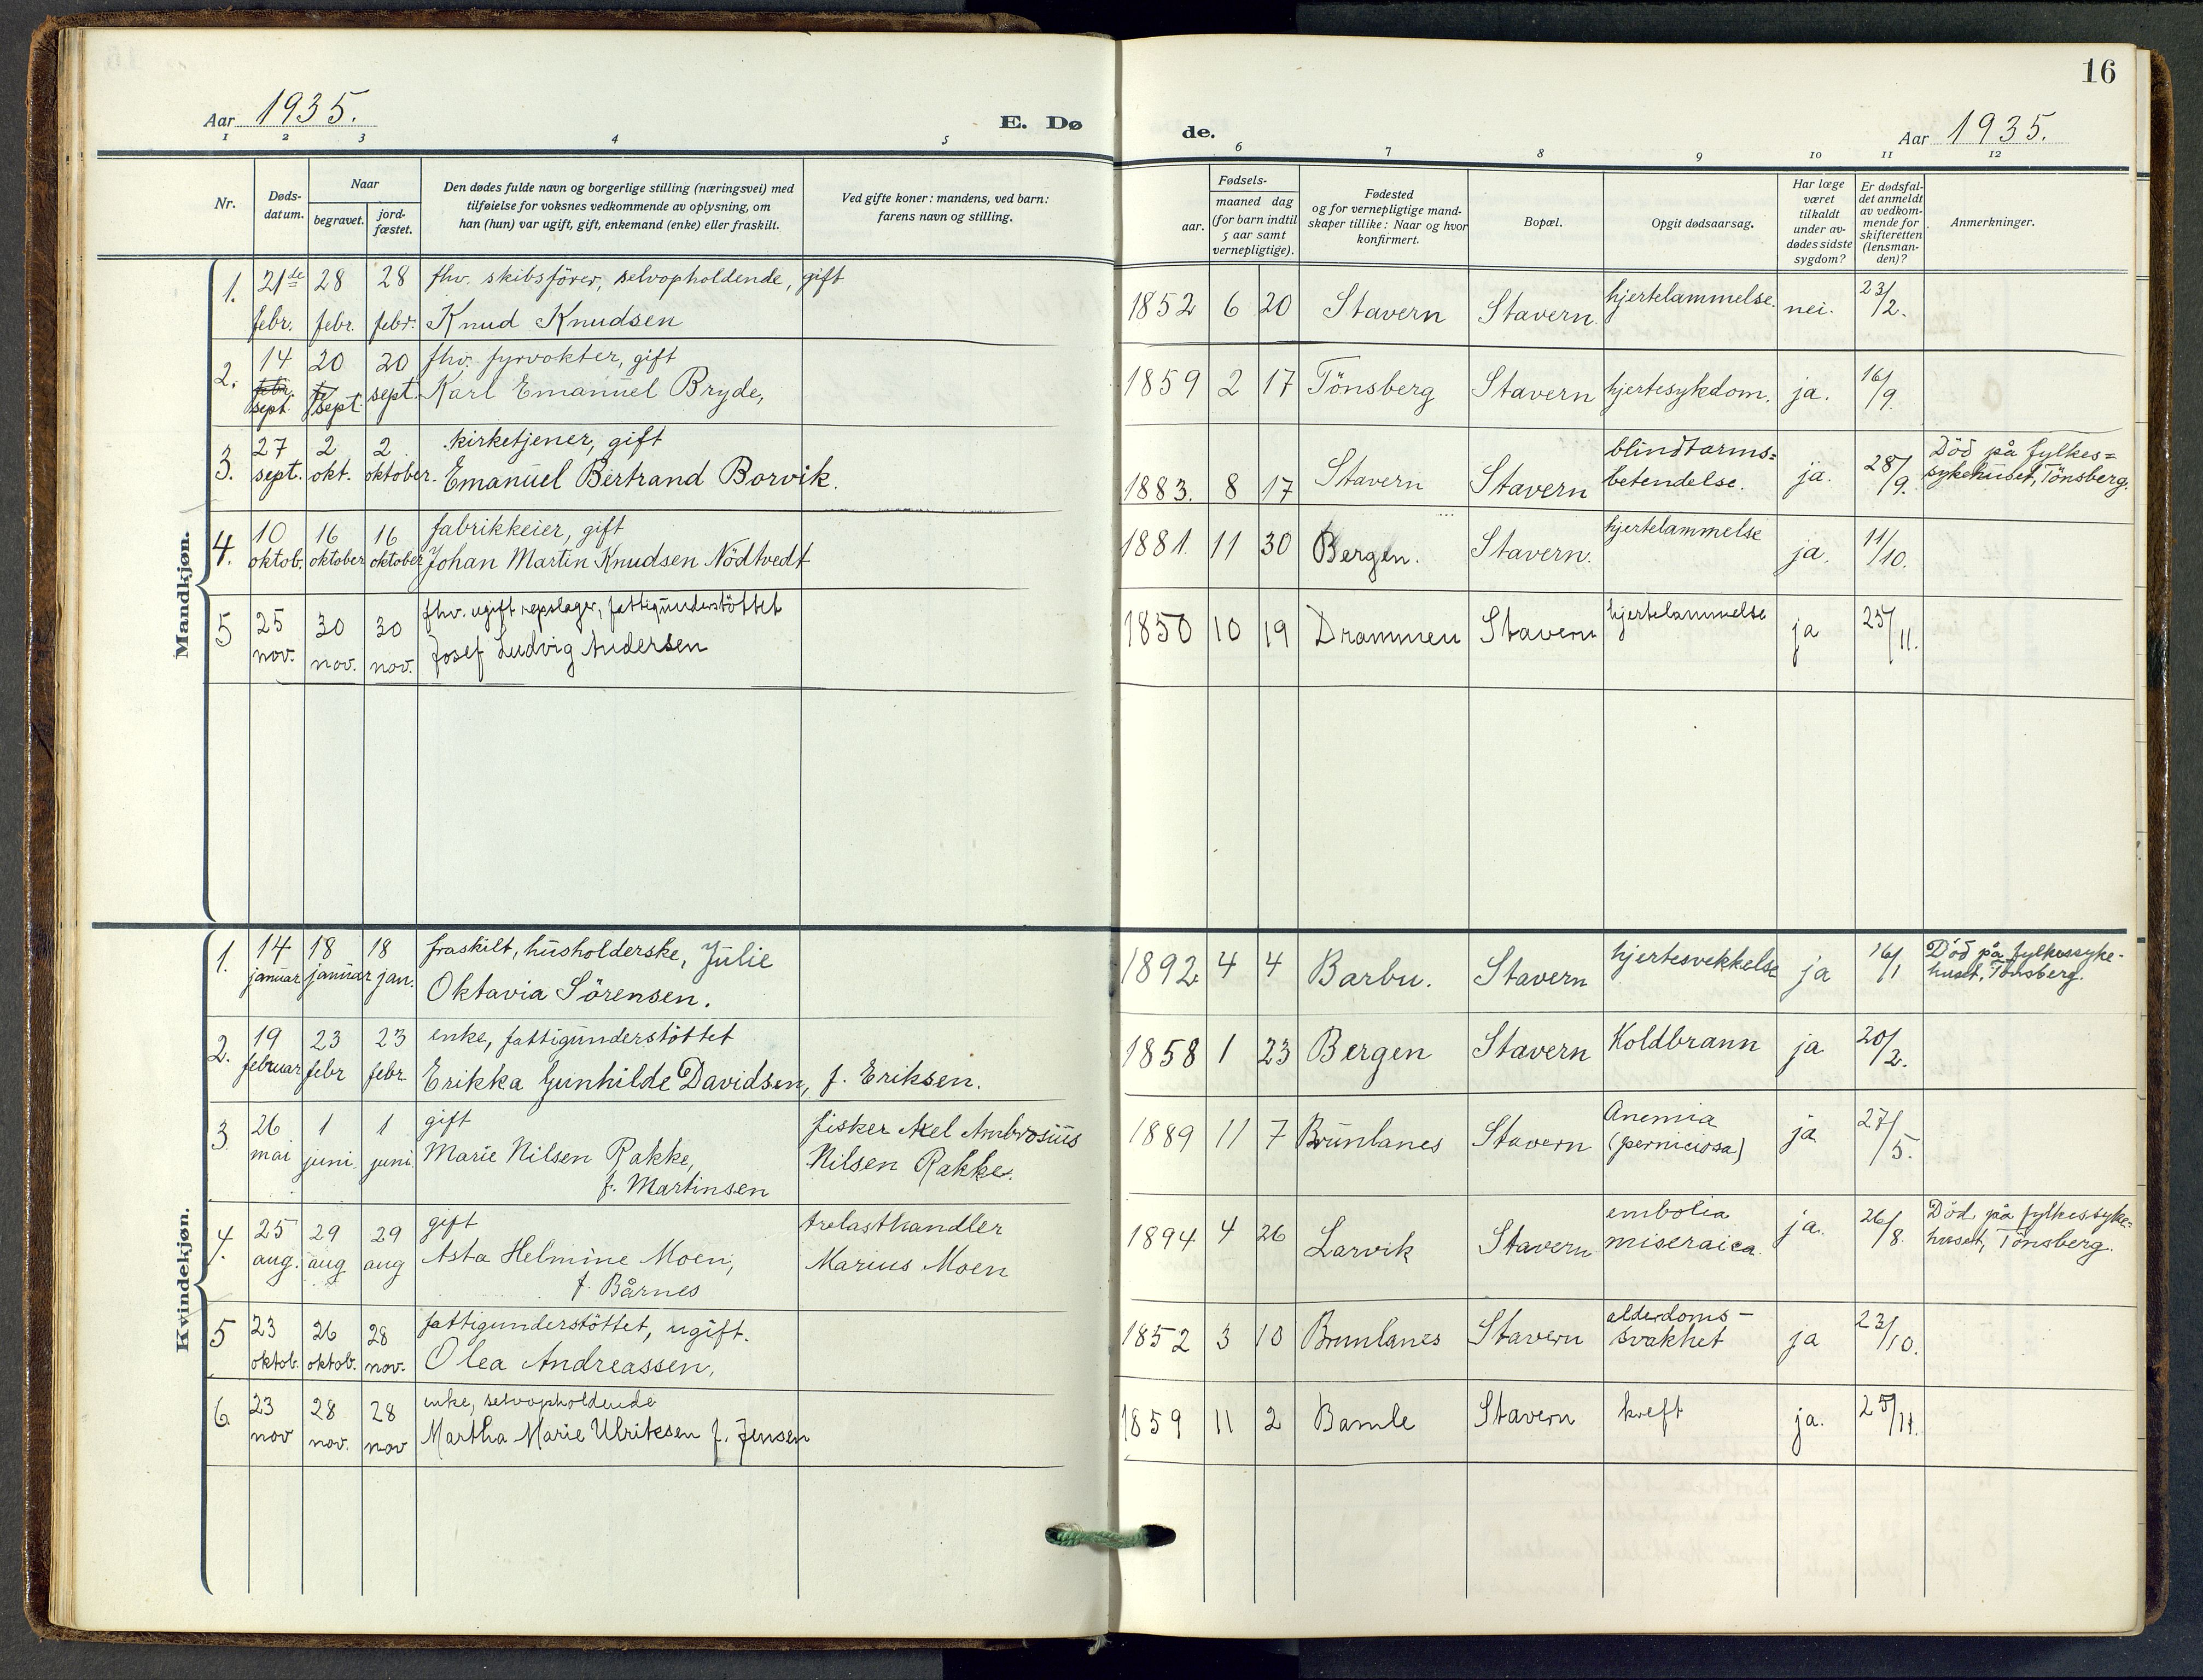 16
Aar 1935.
E. Dø
de.
Aar 1935.
1 2 3 4 5 6 7 8 9 10 11 12
Nr.
Døds-
datum.
Naar
begravet.
jord-
fæstet.
Den dødes fulde navn og borgerlige stilling (næringsvei) med
tilføielse for voksnes vedkommende av oplysning, om
han (hun) var ugift, gift, enkemand (enke) eller fraskilt.
Ved gifte koner: mandens, ved barn:
farens navn og stilling.
Fødsels-
aar.
maaned dag
(for barn indtil
5 aar samt
vernepligtige).
Fødested
og for vernepligtige mand-
skaper tillike: Naar og hvor
konfirmert.
Bopæl.
Opgit dødsaarsag.
Har læge
været
tilkaldt
under av-
dødes sidste
sygdom?
Er dødsfal-
det anmeldt
av vedkom-
mende for
skifteretten
(lensman-
den)?
Anmerkninger.
Mandkjøn.
1. 21de 28 28 fhv. skibsförer, selvopholdende, gift
febr. febr. febr. Knud Knudsen
1852 6 20 Stavern Stavern hjertelammelse. nei. 23/2.
2. 14 20 20 fhv. fyrvokter, gift
febr.
sept. sept. sept. Karl Emanuel Bryde,
1859 2 17 Tönsberg Stavern hjertesykdom. ja. 16/9.
3. 27 2 2 kirketjener, gift
sept. okt. oktober. Emanuel Bertrand Borvik.
1883. 8 17 Stavern Stavern blindtarms=
betendelse. ja. 28/9. Död på fylkes=
sykehuset, Tönsberg.
4. 10 16 16 fabrikkeier, gift
oktob. oktober oktober Johan Martin Knudsen Nödtvedt
1881. 11 30 Bergen. Stavern. hjertelammelse ja. 11/10.
5 25 30 30 fhv. ugift repslager, fattigunderstöttet
nov. nov. nov. Josef Ludvig Andersen
1850 10 19 Drammen Stavern hjertelammelse ja 25/11.
Kvindekjøn.
1. 14 18 18 fraskilt, husholderske, Julie
januar januar jan. Oktavia Sörensen.
1892 4 4 Barbu. Stavern hjertesvekkelse ja 16/1 Död på fylkessyke-
huset, Tönsberg.
2. 19 23 23 enke, fattigunderstöttet
februar febr febr. Erikka Gunhilde Davidsen, f. Eriksen.
1858 1 23 Bergen Stavern Koldbrann ja 20/2.
3 26 1 1 gift
mai juni. juni. Marie Nilsen Rakke,
f. Martinsen
fisker Axel Ambrosius
Nilsen Rakke.
1889 11 7 Brunlanes Stavern Anemia
(perniciosa) ja 27/5.
4. 25 29 29 gift
aug. aug aug Asta Helmine Moen,
f. Bårnes
trelasthandler
Marius Moen
1894 4 26 Larvik Stavern embolia
miseraica. ja. 26/8. Död på fylkessyke=
huset, Tönsberg.
5 23 26 28 fattigunderstöttet, ugift.
oktob. oktob. nov. Olea Andreassen,
1852 3 10 Brunlanes Stavern alderdoms-
svakhet ja 23/10.
6. 23 28 28 enke, selvopholdende
nov nov. nov Martha Marie Ulriksen f. Jensen
1859 11 2 Bamle Stavern kreft ja. 25/11.